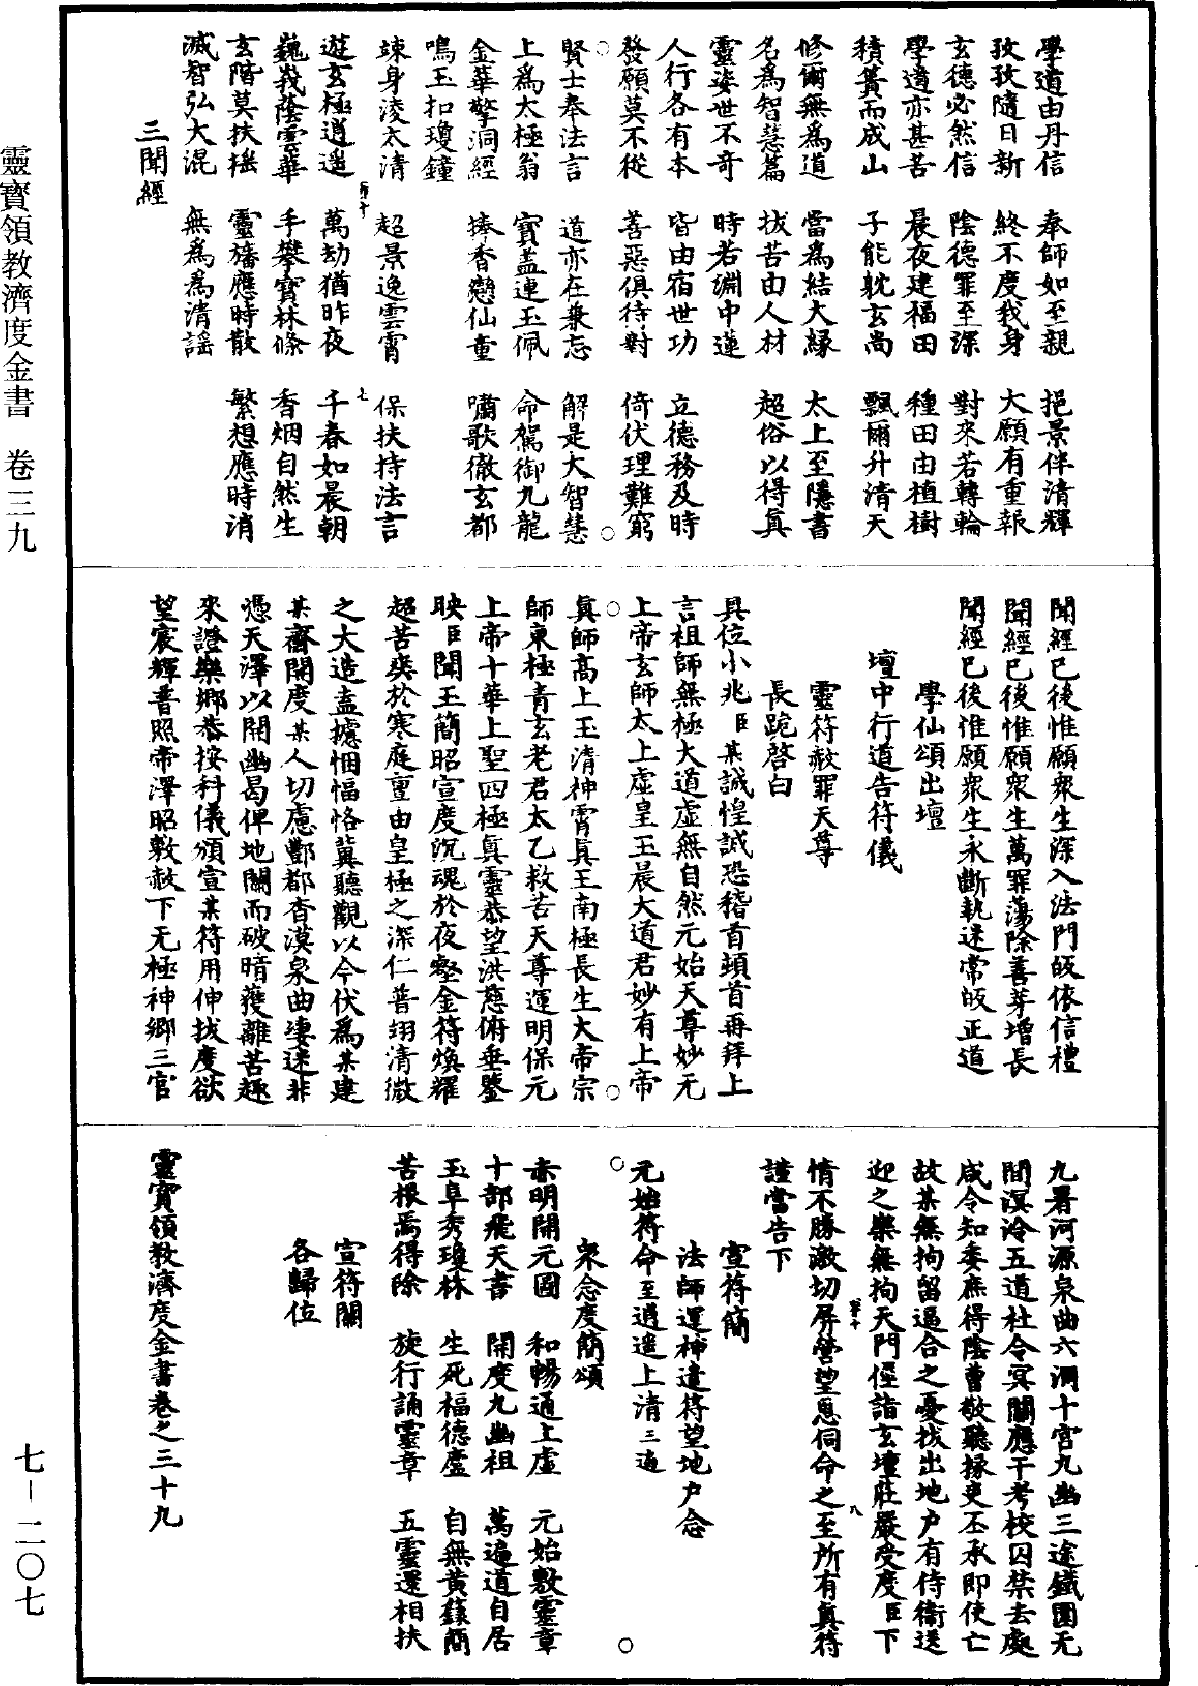 學道由丹信　奉師如至親　挹景伴清輝
孜孜隨日新　終不度我身　大願有重報
玄德必然信　陰德罪至深　對來若轉輪
學道亦甚苦　晨夜建福田　種田由植樹
積簣而成山　子能躭玄尚　飄爾升清天
修爾無為道　當為結大緣　太上至隱書
名為智慧篇　拔苦由人材　超俗以得真
靈姿世不奇　時若淵中蓮
人行各有本　皆由宿世功　立德務及時
發願莫不從　善惡俱待對　倚伏理難窮
賢士奉法言　道亦在兼忘　解是大智慧
上為太極翁　寶蓋連玉佩　命駕御九龍
金華擎洞經　捧香戀仙童　嘯歌徹玄都
鳴玉扣瓊鐘
竦身淩太清　超景逸雲霄　保扶持法言
遊玄極逍遥　萬劫猶昨夜　千春如晨朝
巍峩蔭雲華　手攀寶林條　香烟自然生
玄階莫扶摇　靈旛應時散　繁想應時消
滅智弘大混　無為為清謡
三聞經
聞經已後惟願衆生深入法門皈依信禮
聞經已後惟願衆生萬罪蕩除善芽增長
聞經已後惟願衆生永斷執迷常皈正道
學仙頌出壇
壇中行道告符儀
靈符赦罪天尊
長跪啓白
具位小兆臣某誠惶誠恐稽首頓首再拜上
言祖師無極大道虛無自然元始天尊妙无
上帝玄師太上虛皇玉晨大道君妙有上帝
真師高上玉清神霄真王南極長生大帝宗
師東極青玄老君太乙救苦天尊運明保元
上帝十華上聖四極真靈恭望洪慈俯垂鑒
映臣聞玉簡昭宣度沉魂於夜壑金符煥耀
超苦爽於寒庭亶由皇極之深仁普翊清微
之大造盍攄悃愊恪冀聽觀以今伏為某建
某齋開度某人切慮酆都杳漠泉曲淒迷非
憑天澤以開幽曷俾地關而破暗獲離苦趣
來證樂鄉恭按科儀頒宣某符用伸拔度欲
望宸輝普照帝澤昭敷赦下无極神鄉三官
九署河源泉曲六洞十宮九幽三途鐵圍无
間溟泠五道杜令冥關應干考校囚禁去處
咸令知委庶得陰曹敬聽掾吏丕承即使亡
故某無拘留逼合之憂拔出地户有侍衞送
迎之樂無拘天門徑詣玄壇莊嚴受度臣下
情不勝激切屏營望恩伺命之至所有真符
謹當告下
宣符簡
法師運神遣符望地户念
元始符命至逍遥上清三遍
衆念度簡頌
赤明開元圖　和暢通上虛　元始敷靈章
十部飛天書　開度九幽祖　萬遍道自居
玉阜秀瓊林　生死福德廬　自無黃籙簡
苦根焉得除　旋行誦靈章　五靈還相扶
宣符關
各歸位
靈寶領教濟度金書卷之三十九
靈寶領教濟度金書　卷三九
七－二〇七